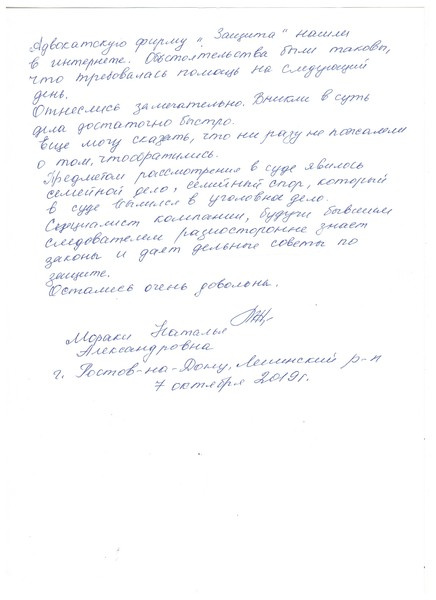 Адвокатскую фирму "Защита" нашли
в интернете. Обстоятельства были таковы,
что требовалась помощь на следующий
день.
Отнеслись замечательно. Вникли в суть
дела достаточно быстро.
Еще могу сказать, что ни разу не пожалели
о том, что обратились.
Предметом рассмотрения в суде явилось
семейной дело, семейный спор, который
в суде вылился в уголовное дело.
Специалист компании, будучи бывшим
следователем разносторонне знает
законы и дает дельные советы по
защите.
Остались очень довольны.
Мораки Наталья
Александровна
г. Ростов-на-Дону, Ленинский р-н
7 октября 2019г.